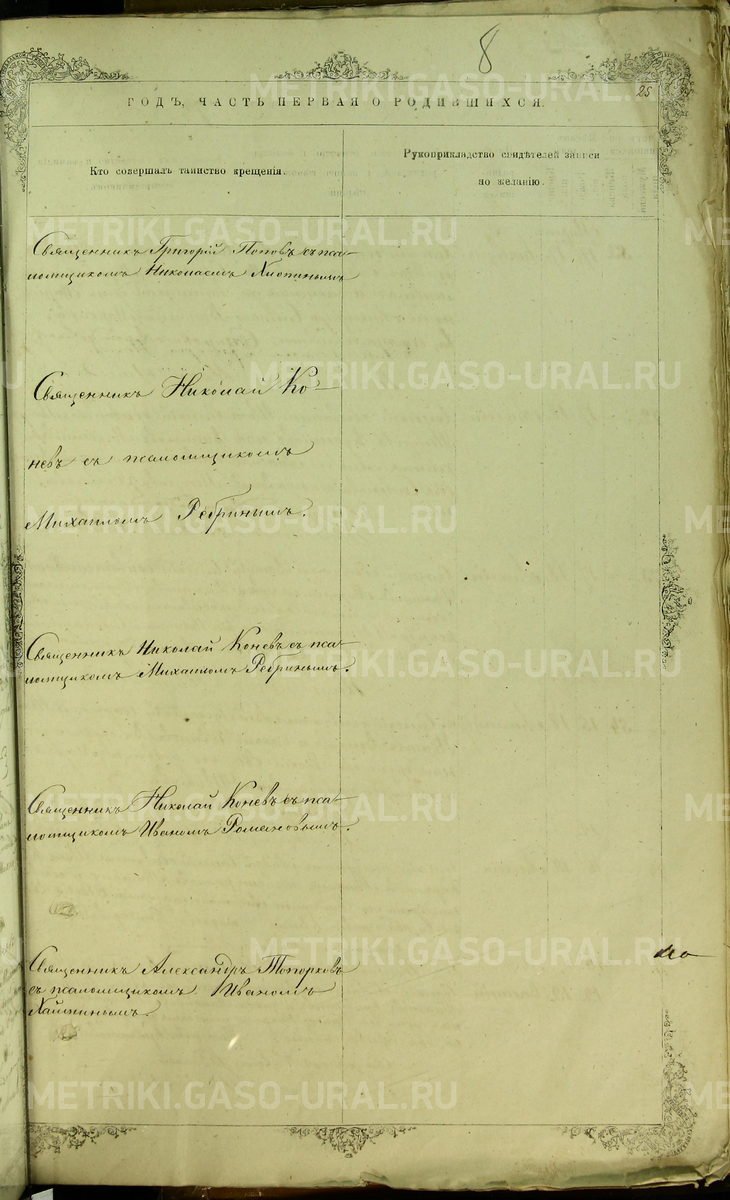 8
25
ГОДЪ, ЧАСТЬ ПЕРВАЯ О РОДИВШИХСЯ.
Кто совершалъ таинство крещенія.
Рукоприкладство свидѣтелей записи
по желанію.
Священникъ Григорій Поповъ съ пса-
ломщикомъ Николаемъ
Священникъ Николай Ко-
невъ съ псаломщикомъ
Михаиломъ Ребринымъ.
Священникъ Николай Коневъ съ пса-
ломщикомъ Михаиломъ Ребринымъ.
Священникъ Николай Коневъ съ пса-
ломщикомъ Иваномъ Романовымъ.
Священникъ Александръ Топорковъ
съ псаломщикомъ Иваномъ
METRIKI.GASO-URAL.RU